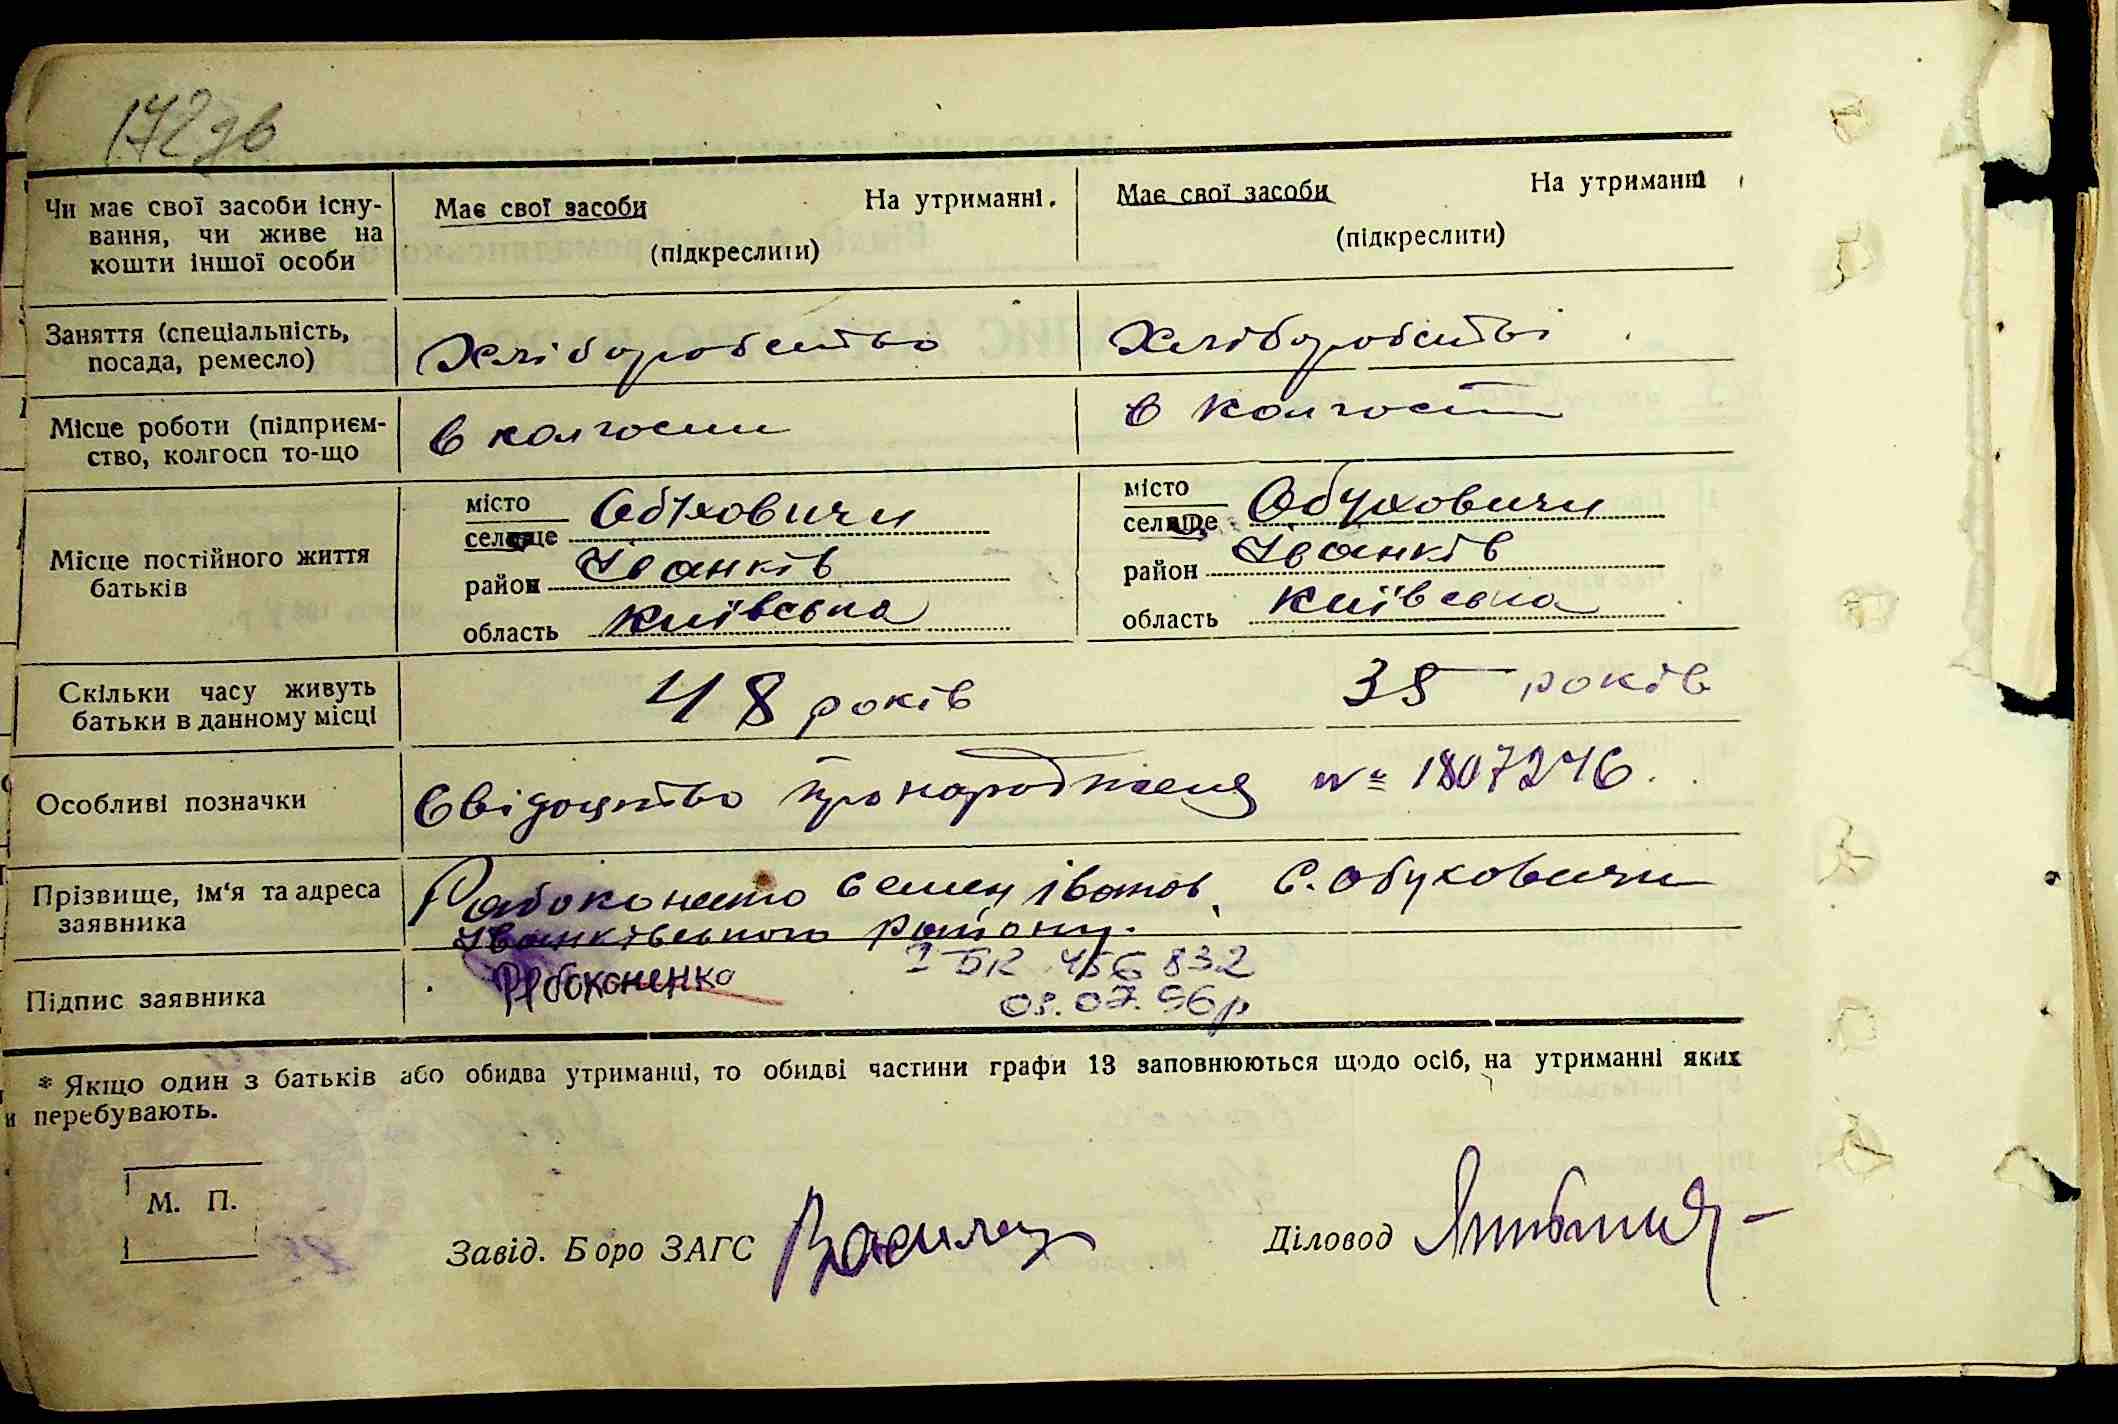 172зв
Чи має свої засоби існу-
вання, чи живе на
кошти іншої особи
Має свої засоби На утриманні.
(підкреслити)
Має свої засоби На утриманні
(підкреслити)
Заняття (спеціальність,
посада, ремесло)
Хліборобство
Хліборобстві
Місце роботи (підприєм-
ство, колгосп то-що
в колгоспи
в колгосп
Місце постійного життя
батьків
місто
селище Обуховичи
район Іванків
область Київська
місто
селище Обуховичи
район Іванків
область Київська
Скільки часу живуть
батьки в данному місці
48 років
35 років
Особливі позначки
Свідоцтво про народження № 1807246.
Прізвище, ім'я та адреса
заявника
Рабоконенко Семен Іванов, С. Обуховичи
Іванківського району.
Підпис заявника
Рабоконенко
І БК 456 832
03.07.96р
* Якщо один з батьків або обидва утриманці, то обидві частини графи 13 заповнюються щодо осіб, на утриманні яких
и перебувають.
М. П.
Завід. Бюро ЗАГС
Діловод